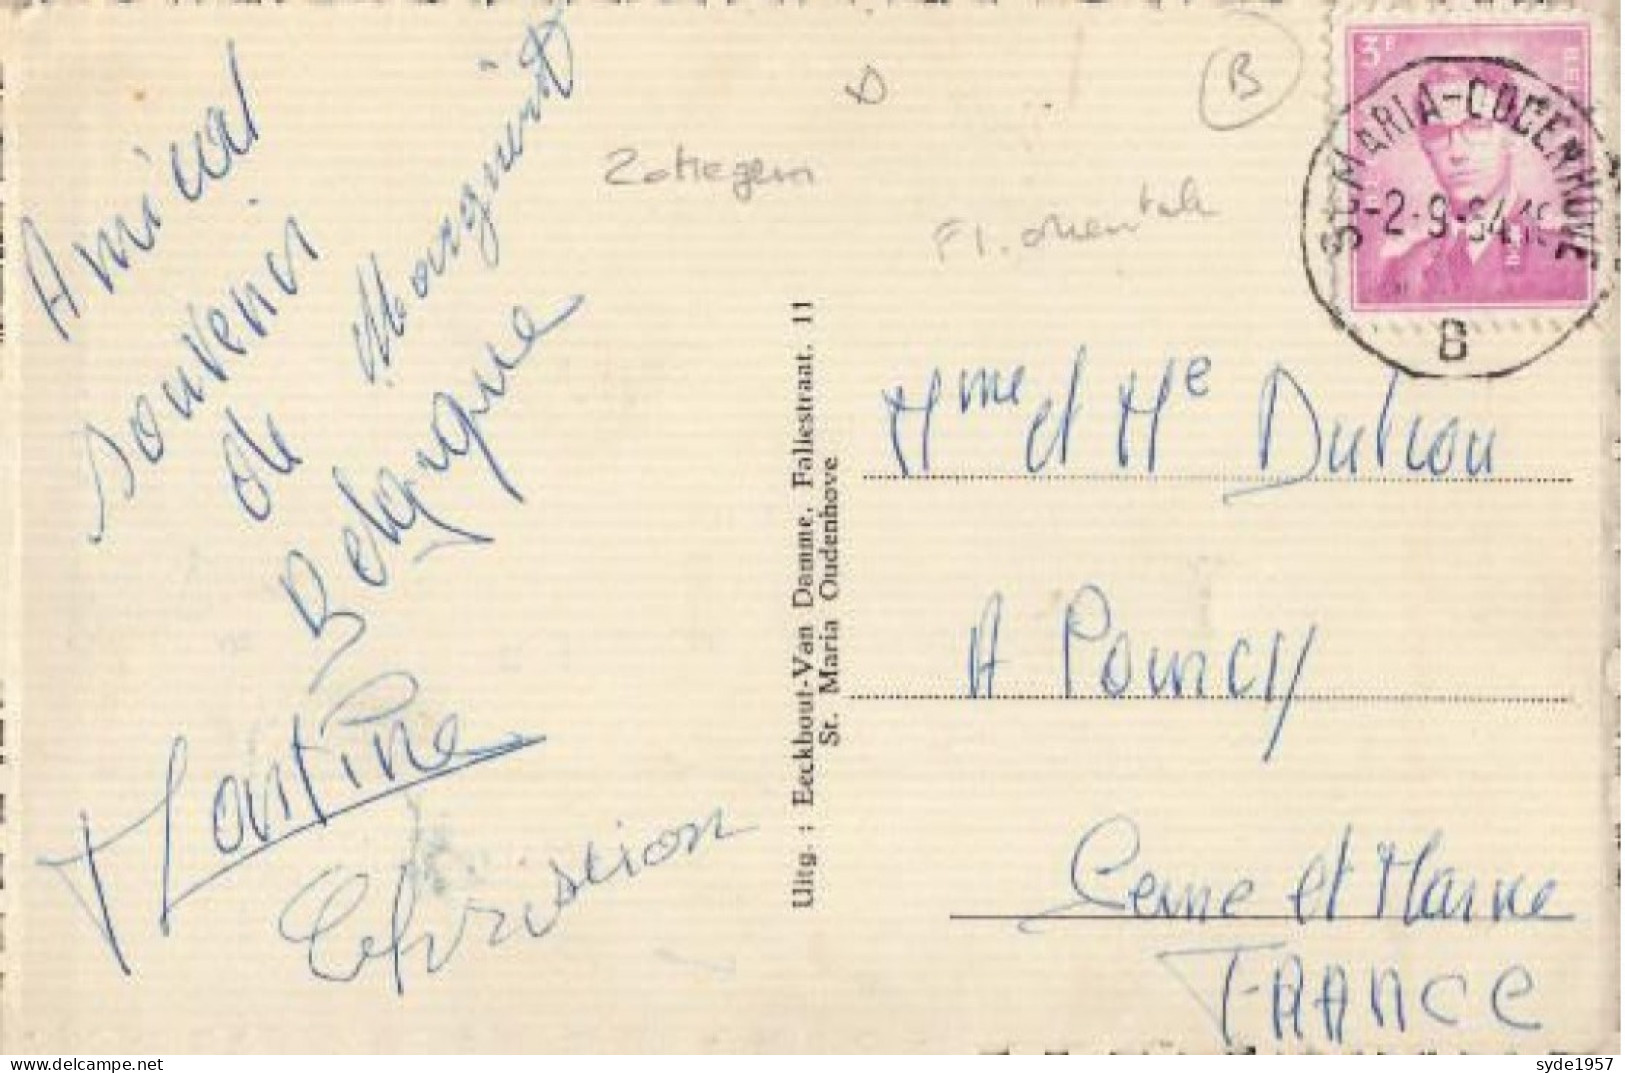 Amical
souvenir
de
Belgique
Marguerite
Martine
Christian
Zottegem
Fl. orientale
B
Uitg. : Eeckhout-Van Damme, Fallestraat, 11
St. Maria Oudenhove
3F
BEL
ST-MARIA-OUDENHOVE
-2-9-64.18
B
Mme et Me Dutrou
A Poincy
Seine et Marne
FRANCE
delcampe.net
syde1957